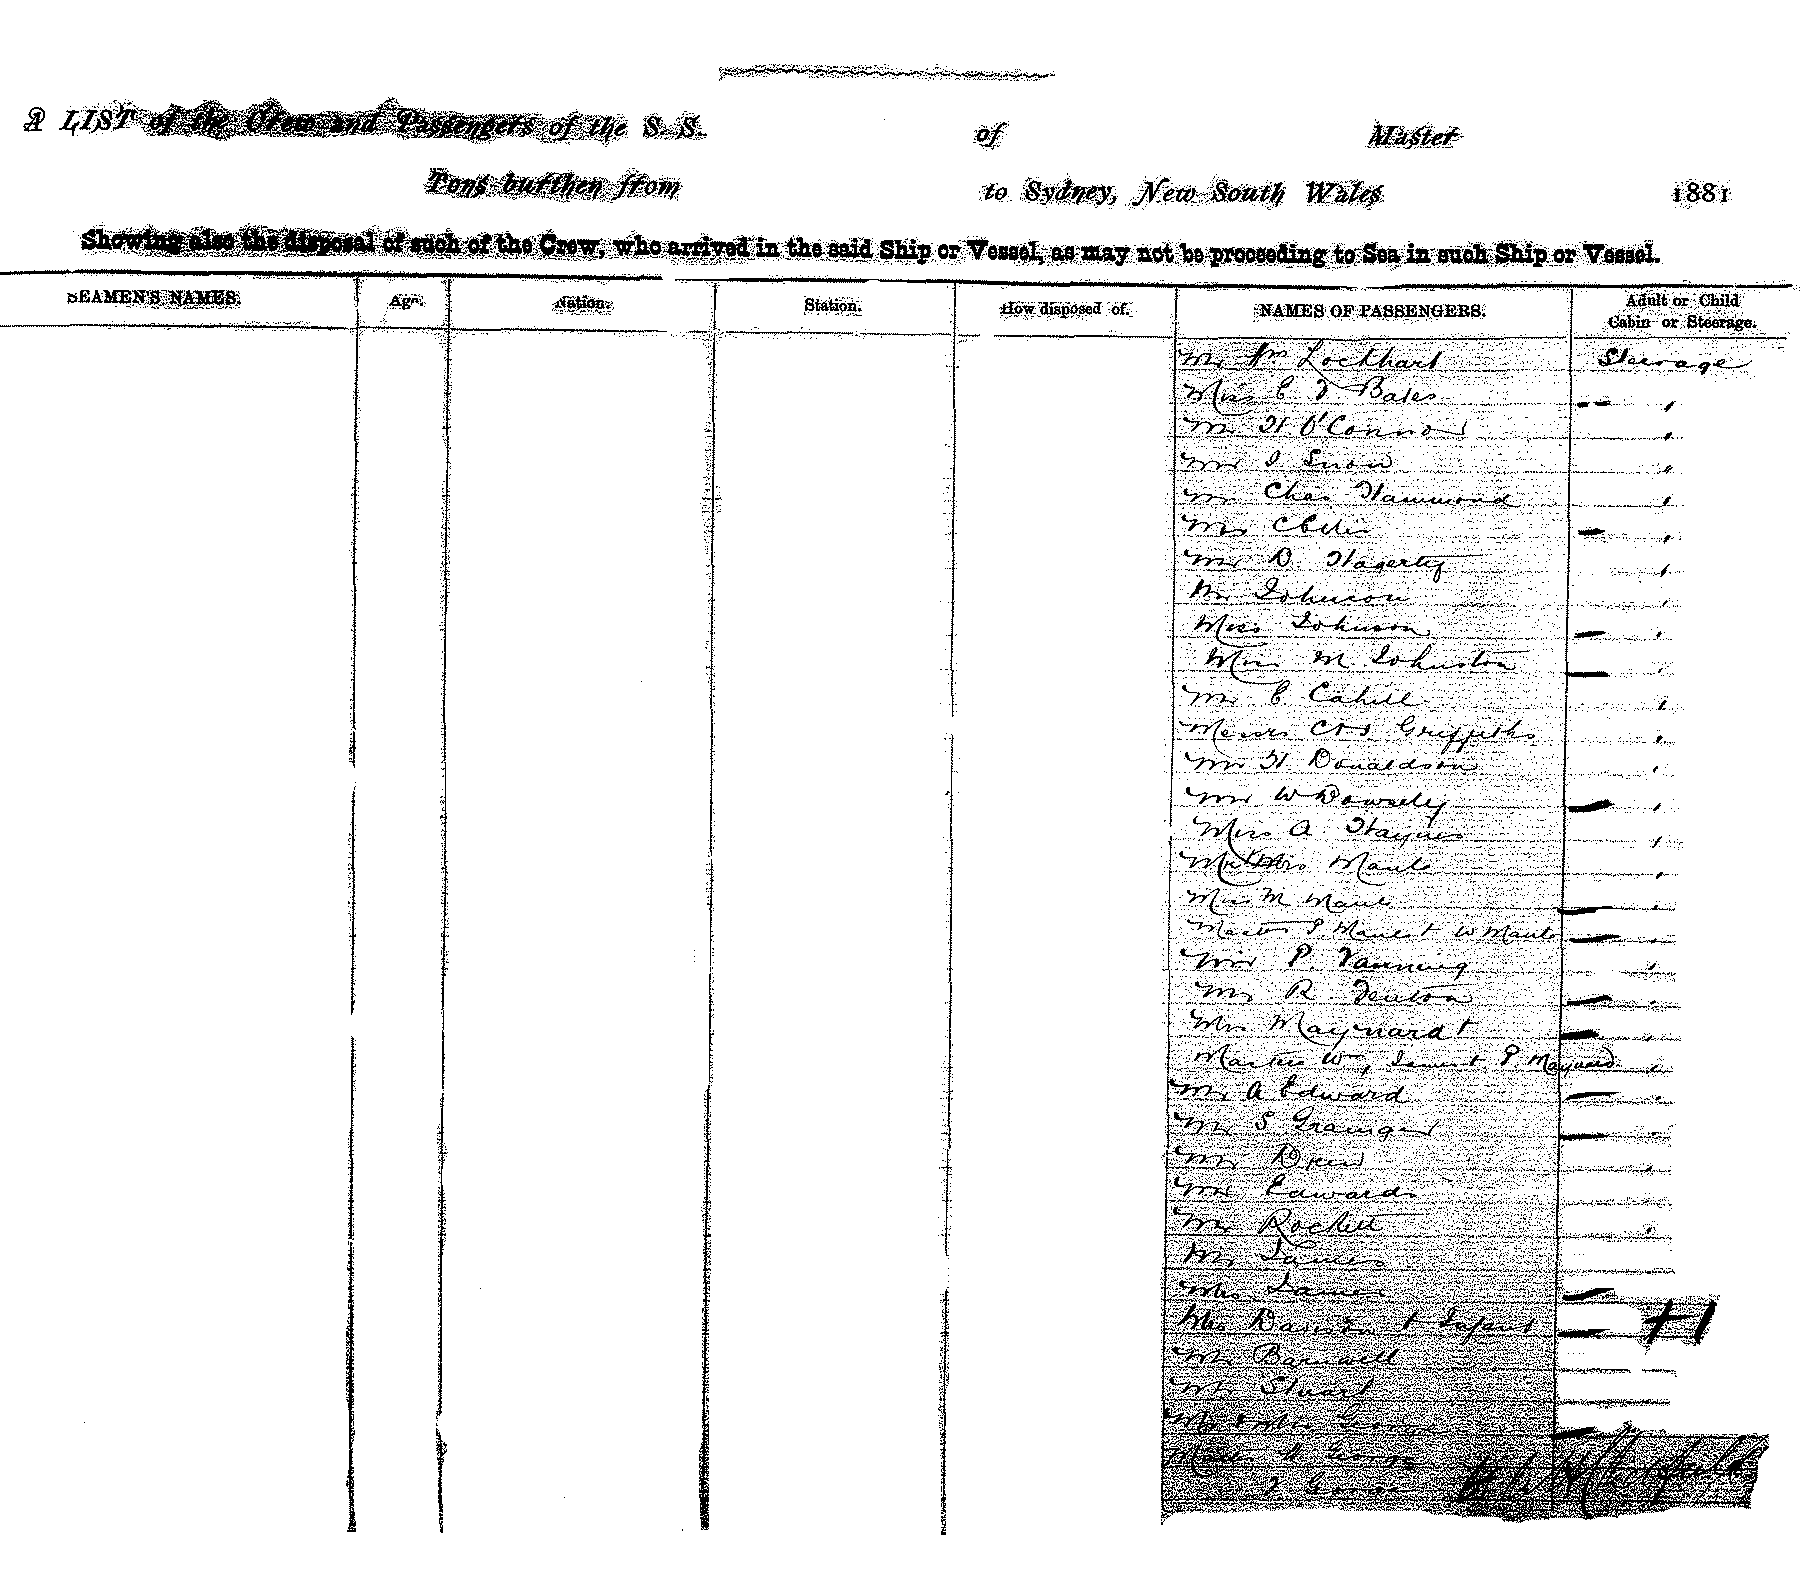 A LIST of the Crew and Passengers of the S. S. of Master
Tons burthen from to Sydney, New South Wales 1881
Showing also the disposal of such of the Crew, who arrived in the said Ship or Vessel, as may not be proceeding to Sea in such Ship or Vessel.
SEAMEN'S NAMES. Age. Nation. Station. How disposed of. NAMES OF PASSENGERS. Adult or Child
Cabin or Steerage.
Mr Wm Lockhart Steerage
Miss E Bates "
Mr H O'Connor "
Mr J Snow "
Mr Chas Hammond "
Mrs "
Mr D. Hagerty "
Mr Johnson "
Miss Johnson "
Miss M Johnston "
Mr E Cahill "
Messrs Griffiths "
Mr H Donaldson "
Mr W Dowsely "
Miss A Haynes "
Mr & Mrs Maule "
Miss M Maule "
Master P. Maule + W Maule "
P. Vanning "
R Denton "
Mrs Maynard + "
Master Wm, James + P. Maynard "
Mr A Edward "
Mr S Grainger "
Mr Drew "
Mr Edwards
Mr Rockett "
Mr James
Mrs James
Mrs + Infant +1
Barnwell
Stuart
Mr & Mrs